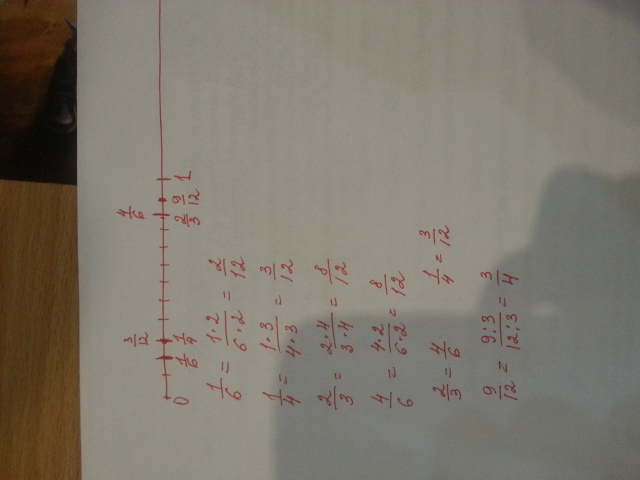 3/12 4/6
0 1/6 1/4 2/3 9/12 1
1/6 = 1·2/6·2 = 2/12
1/4 = 1·3/4·3 = 3/12
2/3 = 2·4/3·4 = 8/12
4/6 = 4·2/6·2 = 8/12
2/3 = 4/6 1/4 = 3/12
9/12 = 9:3/12:3 = 3/4